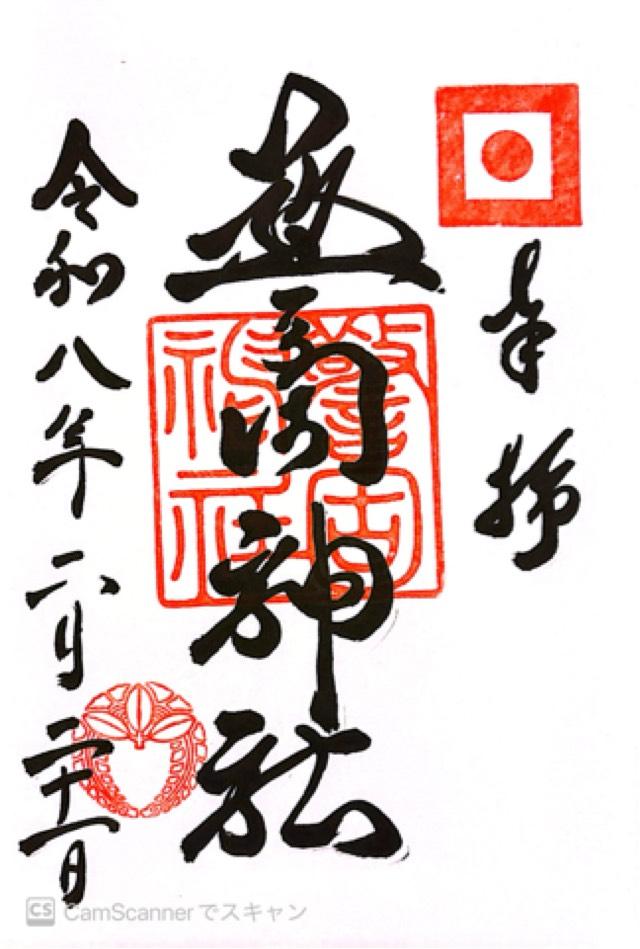 奉拝
警固神社
警固
神社
令和八年六月二十一日
CS CamScannerでスキャン